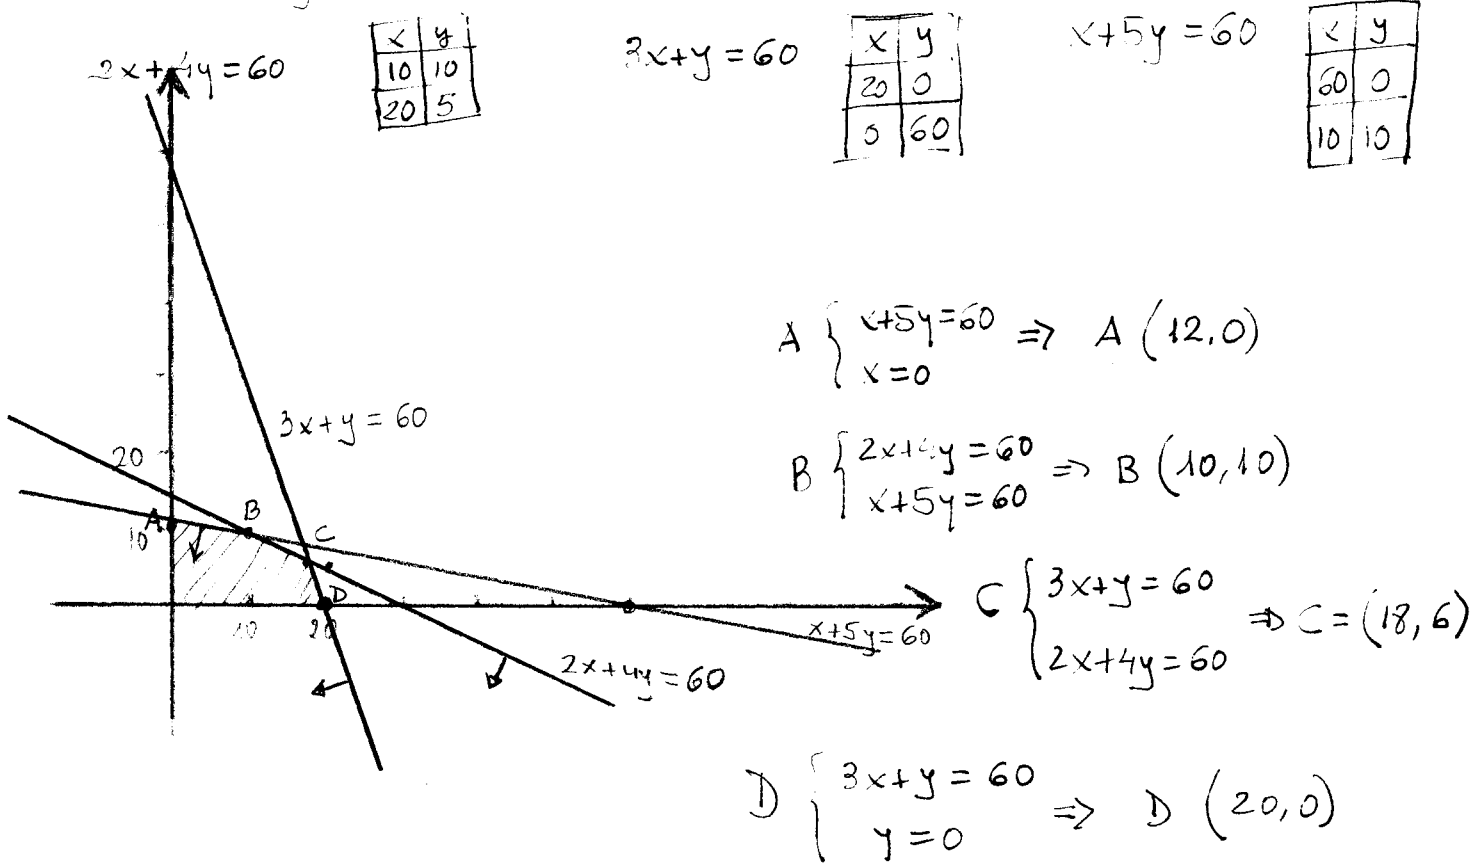 2x+4y=60
x y
10 10
20 5
3x+y=60
x y
20 0
0 60
x+5y=60
x y
60 0
10 10
3x+y=60
20
A
10
B
C
D
10
20
x+5y=60
2x+4y=60
A { x+5y=60
x=0 ⇒ A (12,0)
B { 2x+4y=60
x+5y=60 ⇒ B (10,10)
C { 3x+y=60
2x+4y=60 ⇒ C=(18,6)
D { 3x+y=60
y=0 ⇒ D (20,0)